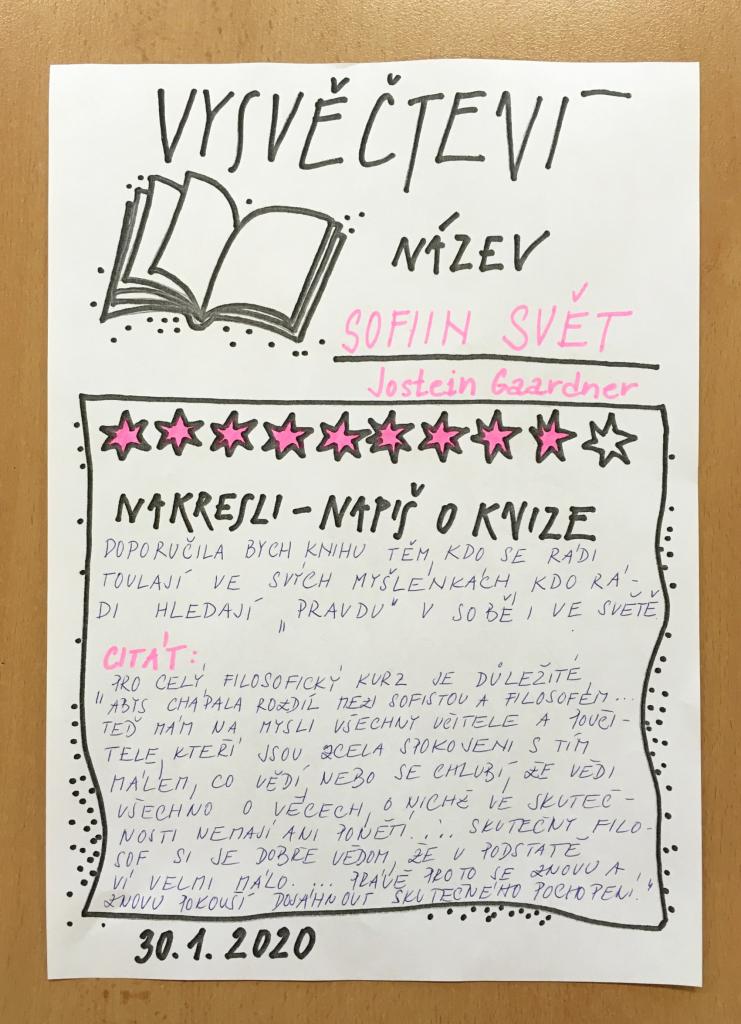 VYSVĚČTENÍ
NÁZEV
SOFIIN SVĚT
Jostein Gaardner
NAKRESLI - NAPIŠ O KNIZE
DOPORUČILA BYCH KNIHU TĚM, KDO SE RÁDI
TOULAJÍ VE SVÝCH MYŠLENKÁCH, KDO RÁ-
DI HLEDAJÍ „PRAVDU“ V SOBĚ I VE SVĚTĚ.
CITÁT:
„PRO CELÝ FILOSOFICKÝ KURZ JE DŮLEŽITÉ,
ABYS CHÁPALA ROZDÍL MEZI SOFISTOU A FILOSOFEM...
TEĎ MÁM NA MYSLI VŠECHNY UČITELE A POUČI-
TELE, KTEŘÍ JSOU ZCELA SPOKOJENI S TÍM
MÁLEM, CO VĚDÍ, NEBO SE CHLUBÍ, ŽE VĚDÍ
VŠECHNO O VĚCECH, O NICHŽ VE SKUTEČ-
NOSTI NEMAJÍ ANI PONĚTÍ. ... SKUTEČNÝ FILO-
SOF SI JE DOBŘE VĚDOM, ŽE V PODSTATĚ
VÍ VELMI MÁLO. ... PRÁVĚ PROTO SE ZNOVU A
ZNOVU POKOUŠÍ DOSÁHNOUT SKUTEČNÉHO POCHOPENÍ.“
30.1.2020